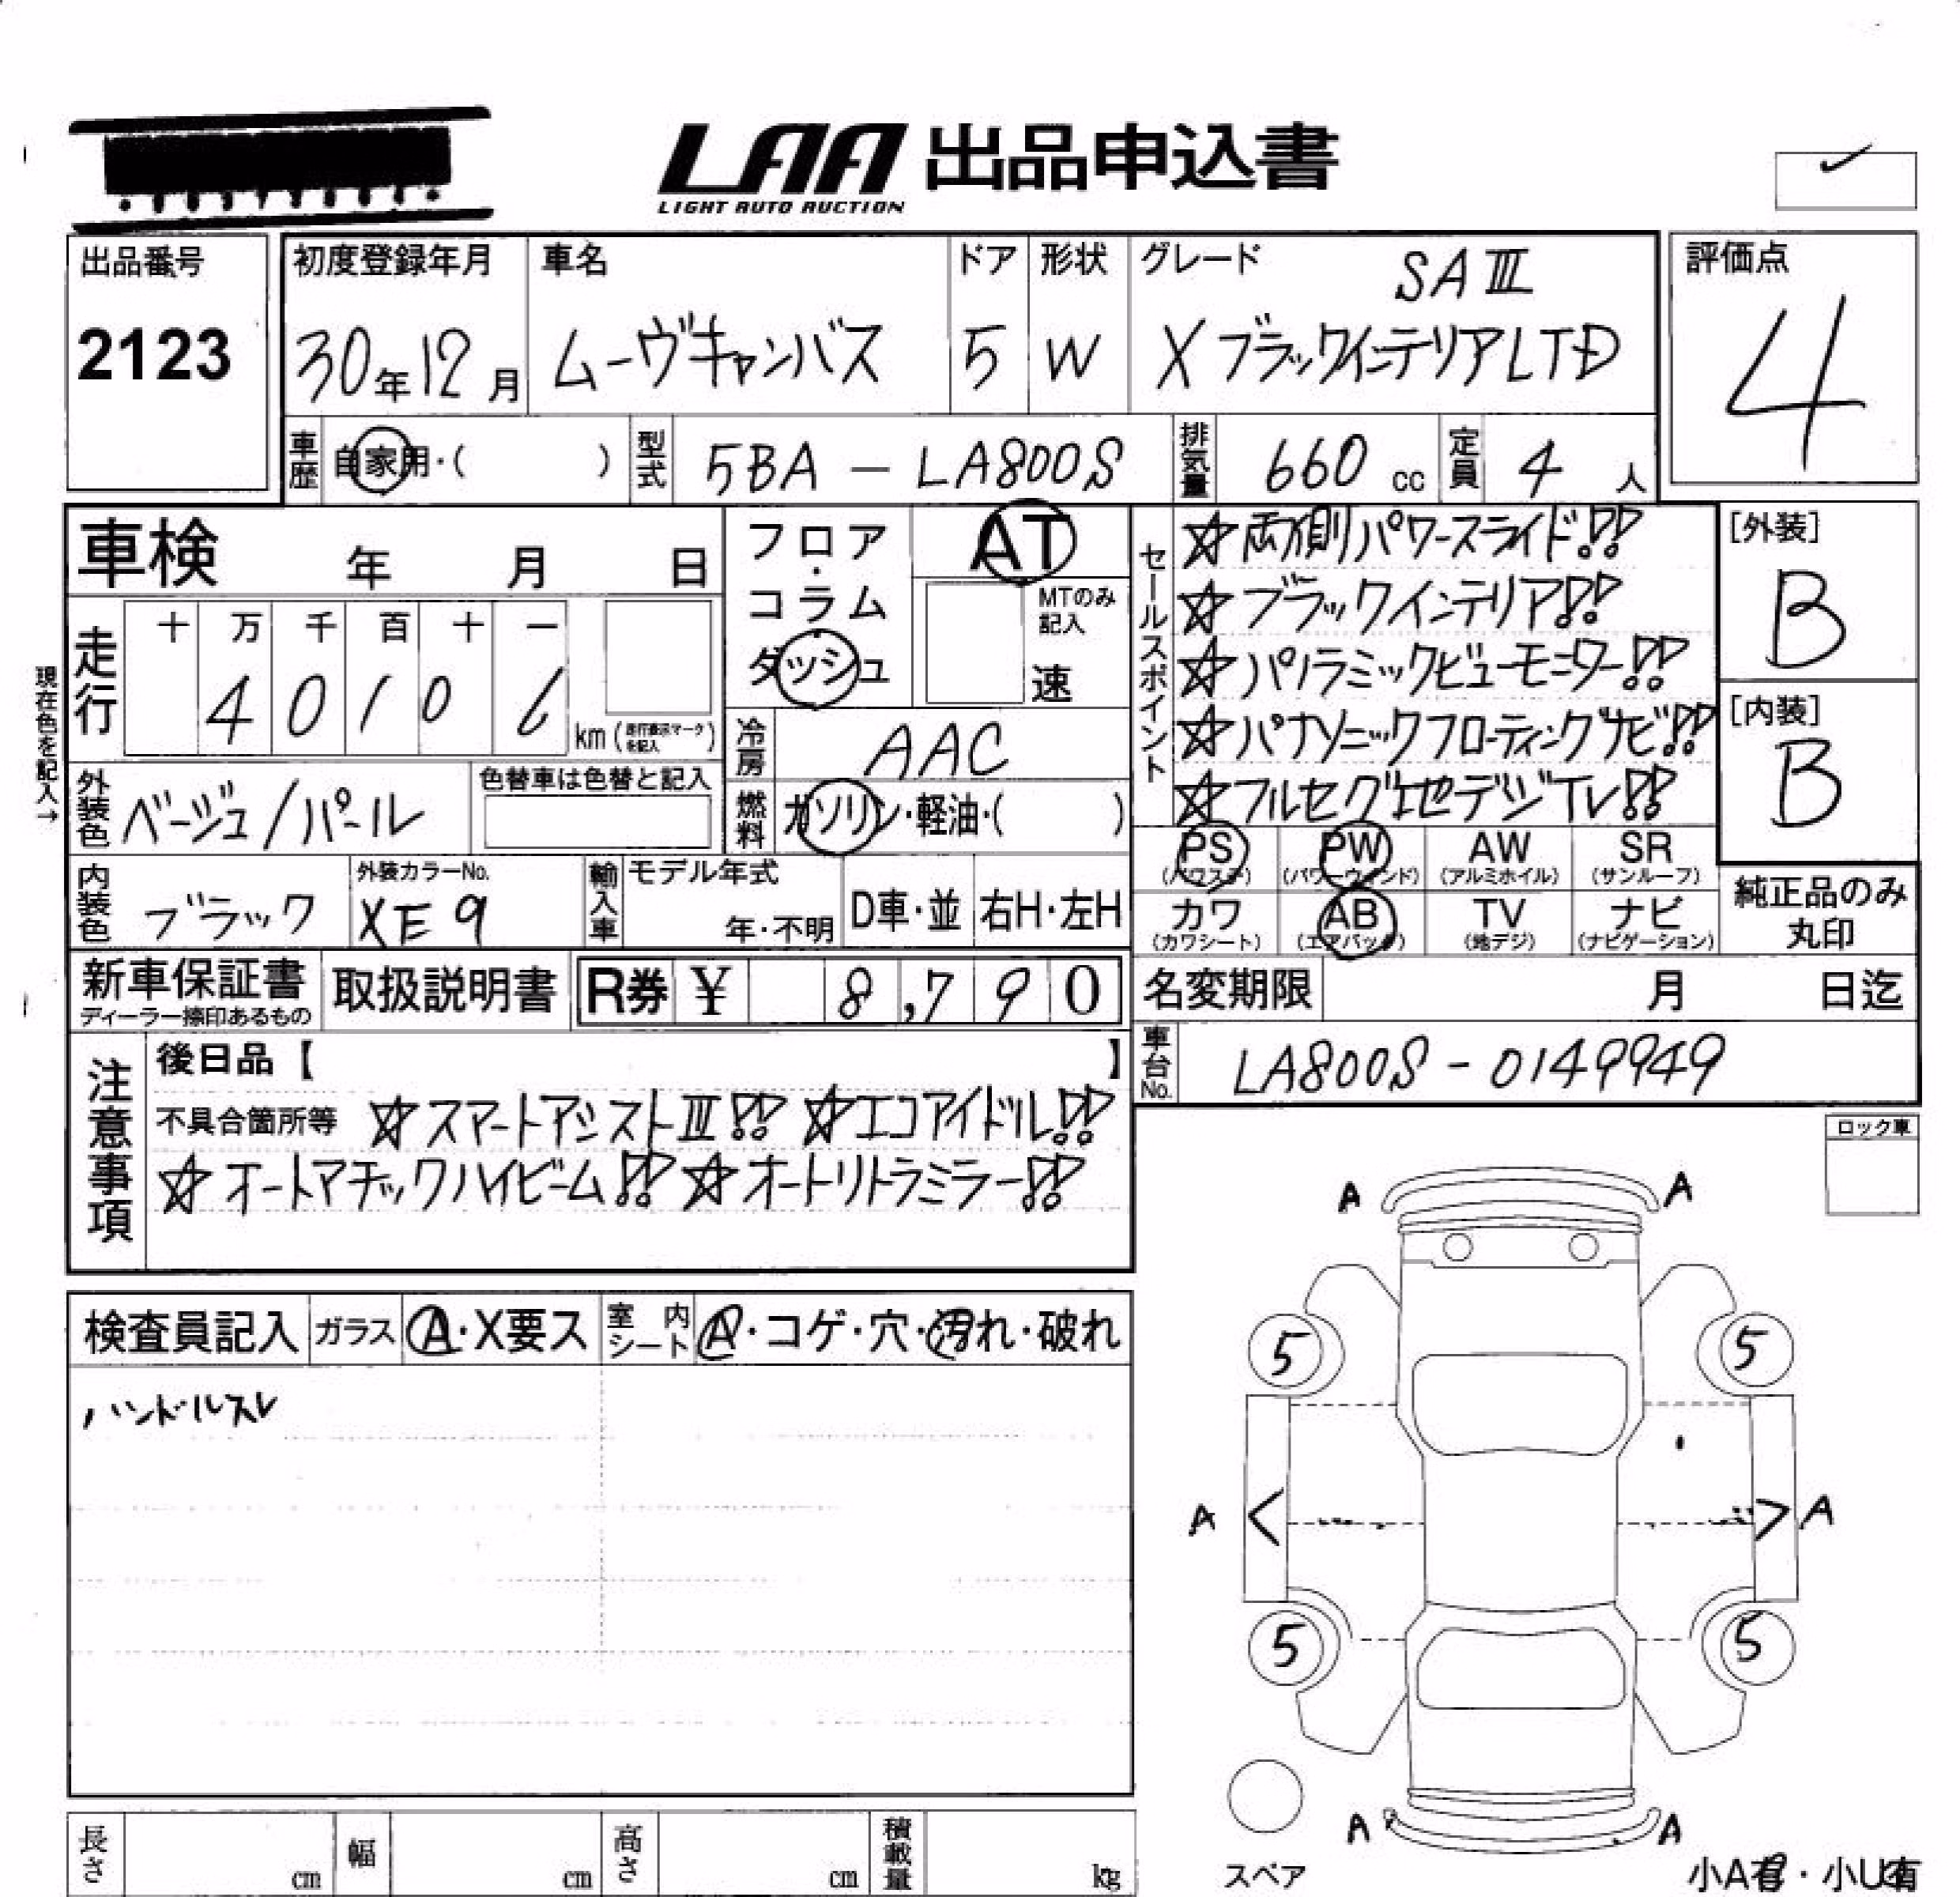 LAA 出品申込書
LIGHT AUTO AUCTION
出品番号
2123
初度登録年月
30年12月
車名
ムーヴキャンバス
ドア
5
形状
W
グレード
SAⅢ
XブラックインテリアLTD
評価点
4
車歴
自家用・( )
型式
5BA-LA800S
排気量
660cc
定員
4人
車検 年 月 日
フロア・コラム
ダッシュ
AT
MTのみ
記入
速
走行
十 万 千 百 十 一
4 0 1 0 6
km(走行表示マークを記入)
現在色を記入→
冷房
AAC
燃料
ガソリン・軽油・( )
外装色
ベージュ/パール
色替車は色替と記入
内装色
ブラック
外装カラーNo.
XE9
輸入車
モデル年式
年・不明
D車・並
右H・左H
セールスポイント
☆両側パワースライド!!
☆ブラックインテリア!!
☆パノラミックビューモニター!!
☆パナソニックフローティングナビ!!
☆フルセグ地デジTV!!
[外装]
B
[内装]
B
PS
(パワステ)
PW
(パワーウィンド)
AW
(アルミホイル)
SR
(サンルーフ)
カワ
(カワシート)
AB
(エアバック)
TV
(地デジ)
ナビ
(ナビゲーション)
純正品のみ
丸印
新車保証書
ディーラー捺印あるもの
取扱説明書
R券 ¥ 8,790
名変期限 月 日迄
車台No.
LA800S-0149949
注意事項
後日品【 】
不具合箇所等 ☆スマートアシストⅢ!! ☆エコアイドル!!
☆オートマチックハイビーム!! ☆オートリトラミラー!!
ロック車
検査員記入
ガラス
A・X要ス
室内シート
A・コゲ・穴・汚れ・破れ
ハンドルスレ
A A
5 5
A A
5 5
A A
スペア
小A有・小U有
長さ cm
幅 cm
高さ cm
積載量 kg